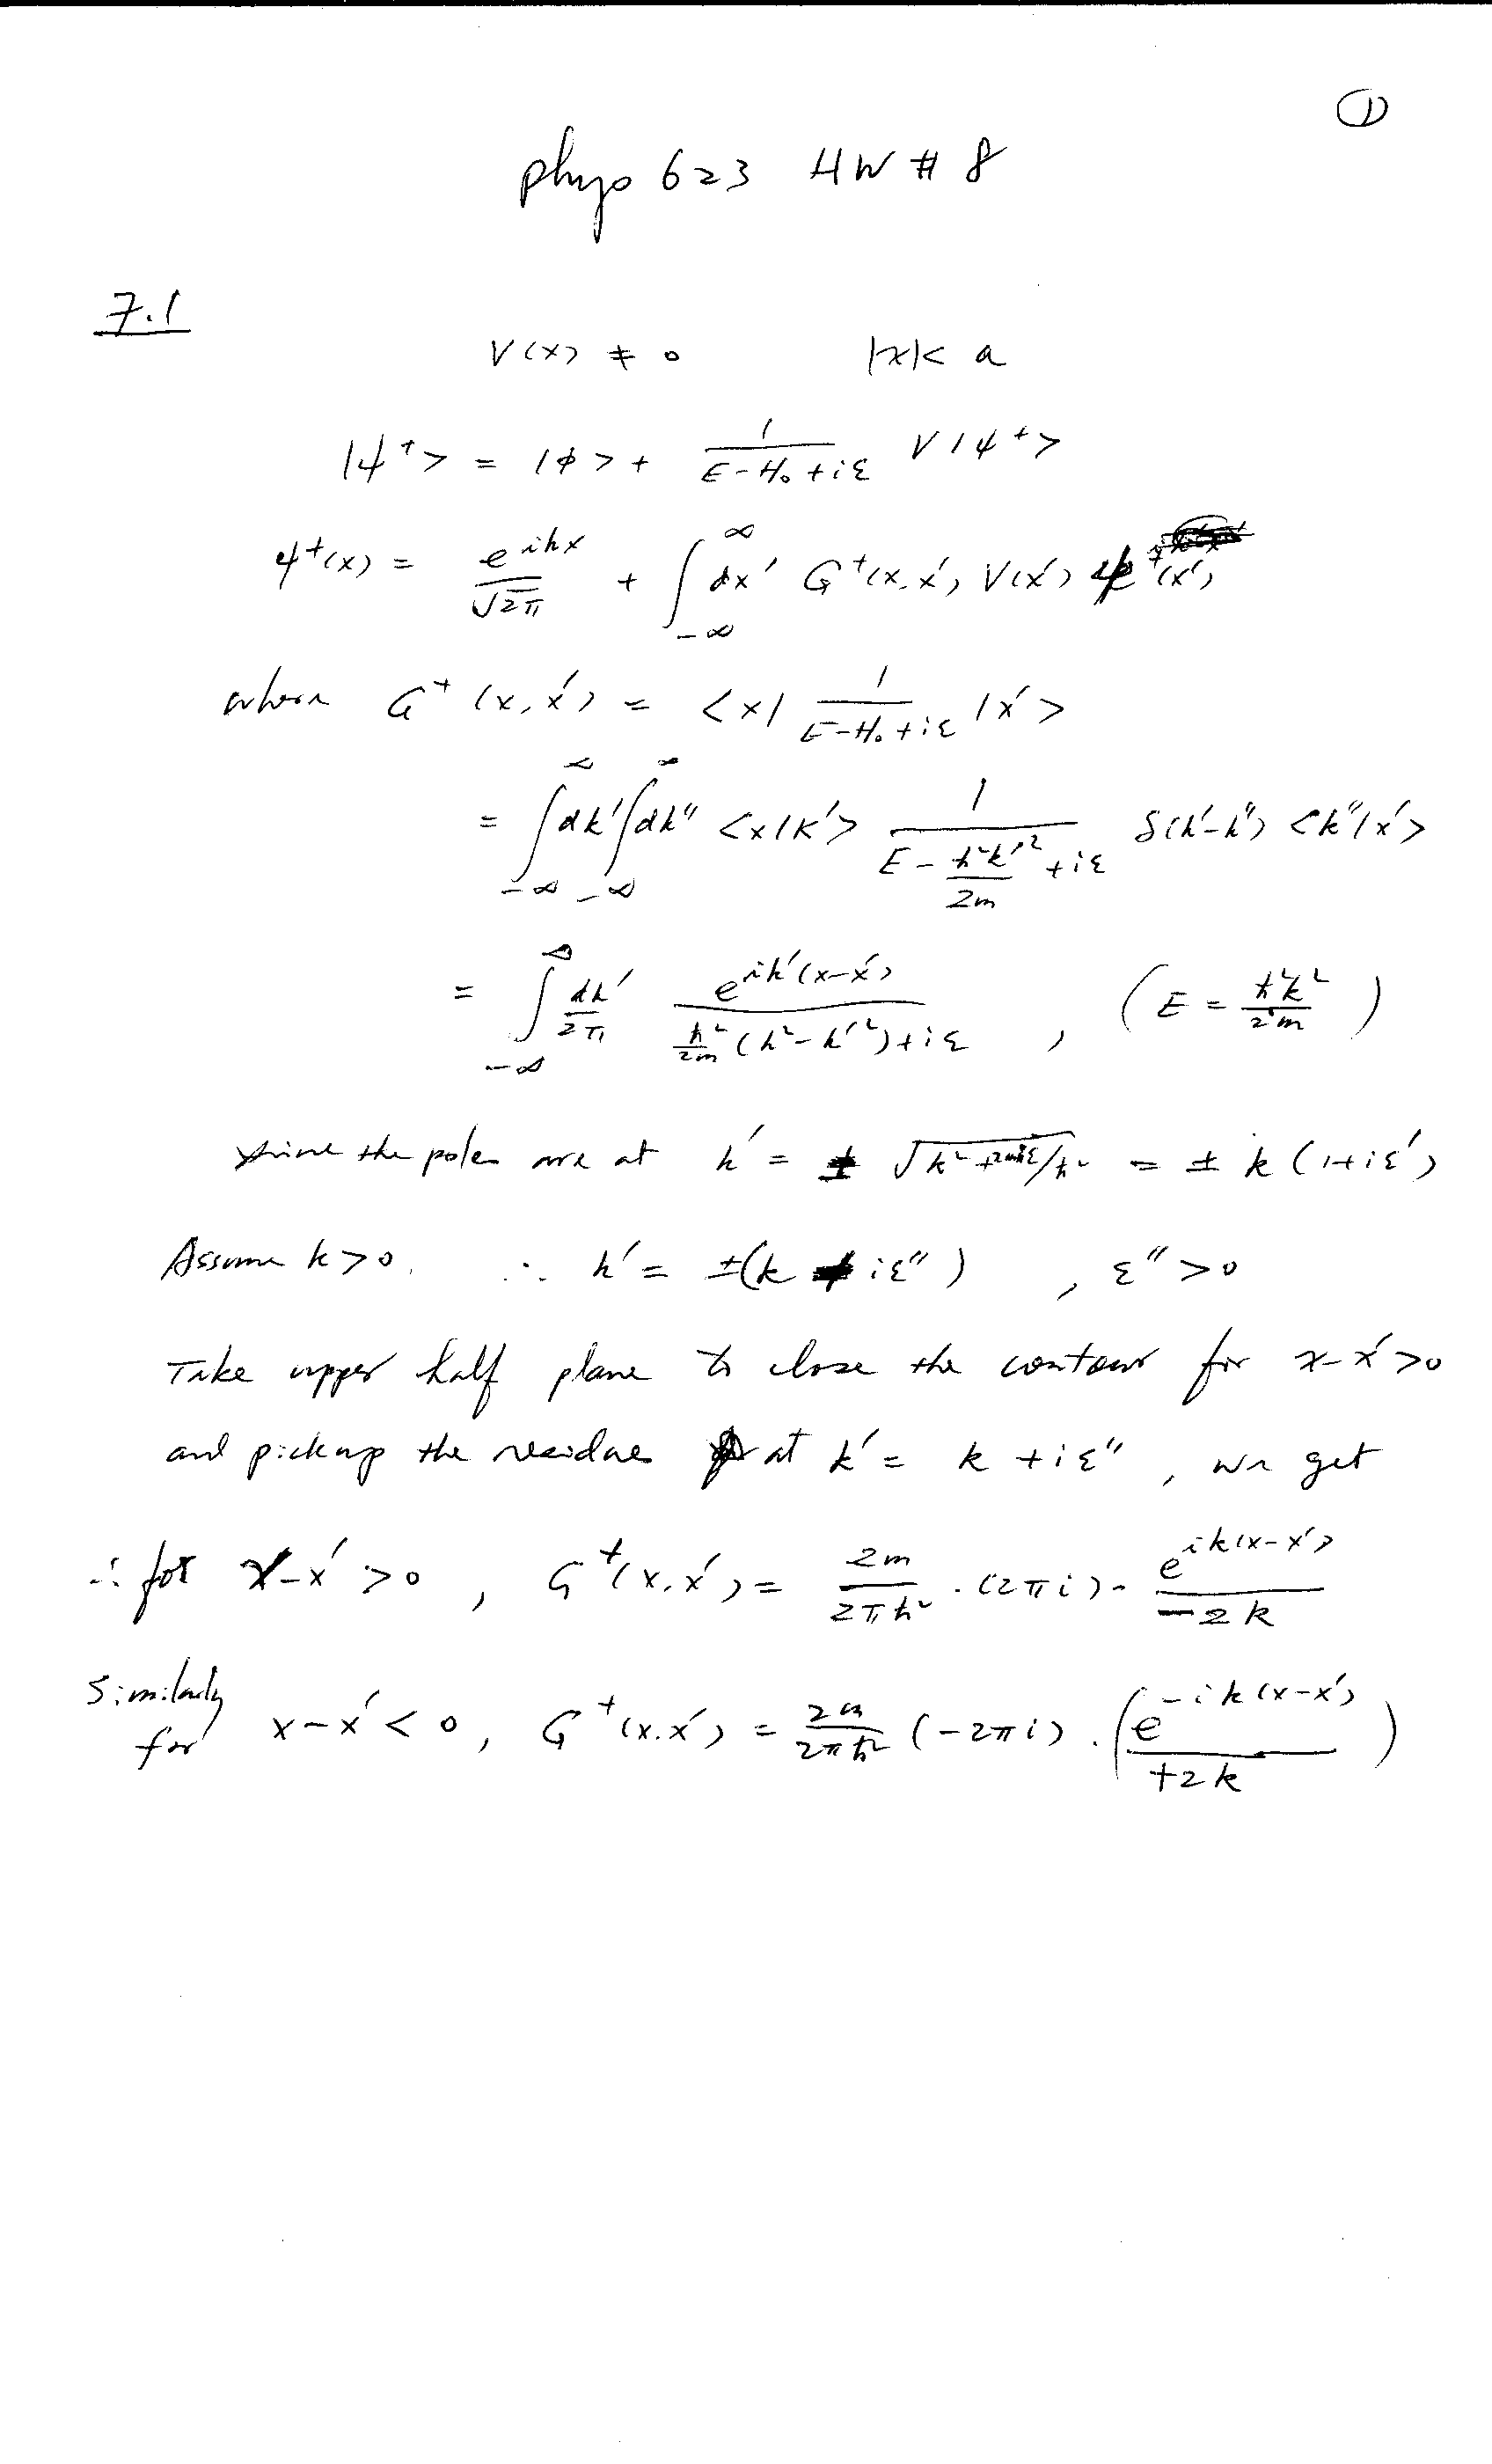 ①
phys 623 HW # 8
7.1
V(x) ≠ 0 |x| < a
|ψ⁺> = |φ> + 1/(E-H₀+iε) V|ψ⁺>
ψ⁺(x) = e^{ikx}/√2π + ∫_{-∞}^{∞} dx' G⁺(x,x') V(x') ψ⁺(x')
where G⁺(x,x') = <x| 1/(E-H₀+iε) |x'>
= ∫_{-∞}^{∞} dk' ∫_{-∞}^{∞} dk'' <x|k'> 1/(E - ħ²k'²/2m + iε) δ(k'-k'') <k''|x'>
= ∫_{-∞}^{∞} dk'/2π e^{ik'(x-x')}/(ħ²/2m (k²-k'²)+iε) , (E = ħ²k²/2m)
Since the poles are at k' = ± √(k²+2miε/ħ²) = ± k(1+iε')
Assume k>0. ∴ k' = ±(k + iε'') , ε''>0
Take upper half plane to close the contour for x-x'>0
and pick up the residue at k' = k + iε'' , we get
∴ for x-x'>0 , G⁺(x,x') = 2m/2πħ² · (2πi) · e^{ik(x-x')}/-2k
Similarly
for x-x'<0, G⁺(x,x') = 2m/2πħ² (-2πi) · (e^{-ik(x-x')}/+2k)